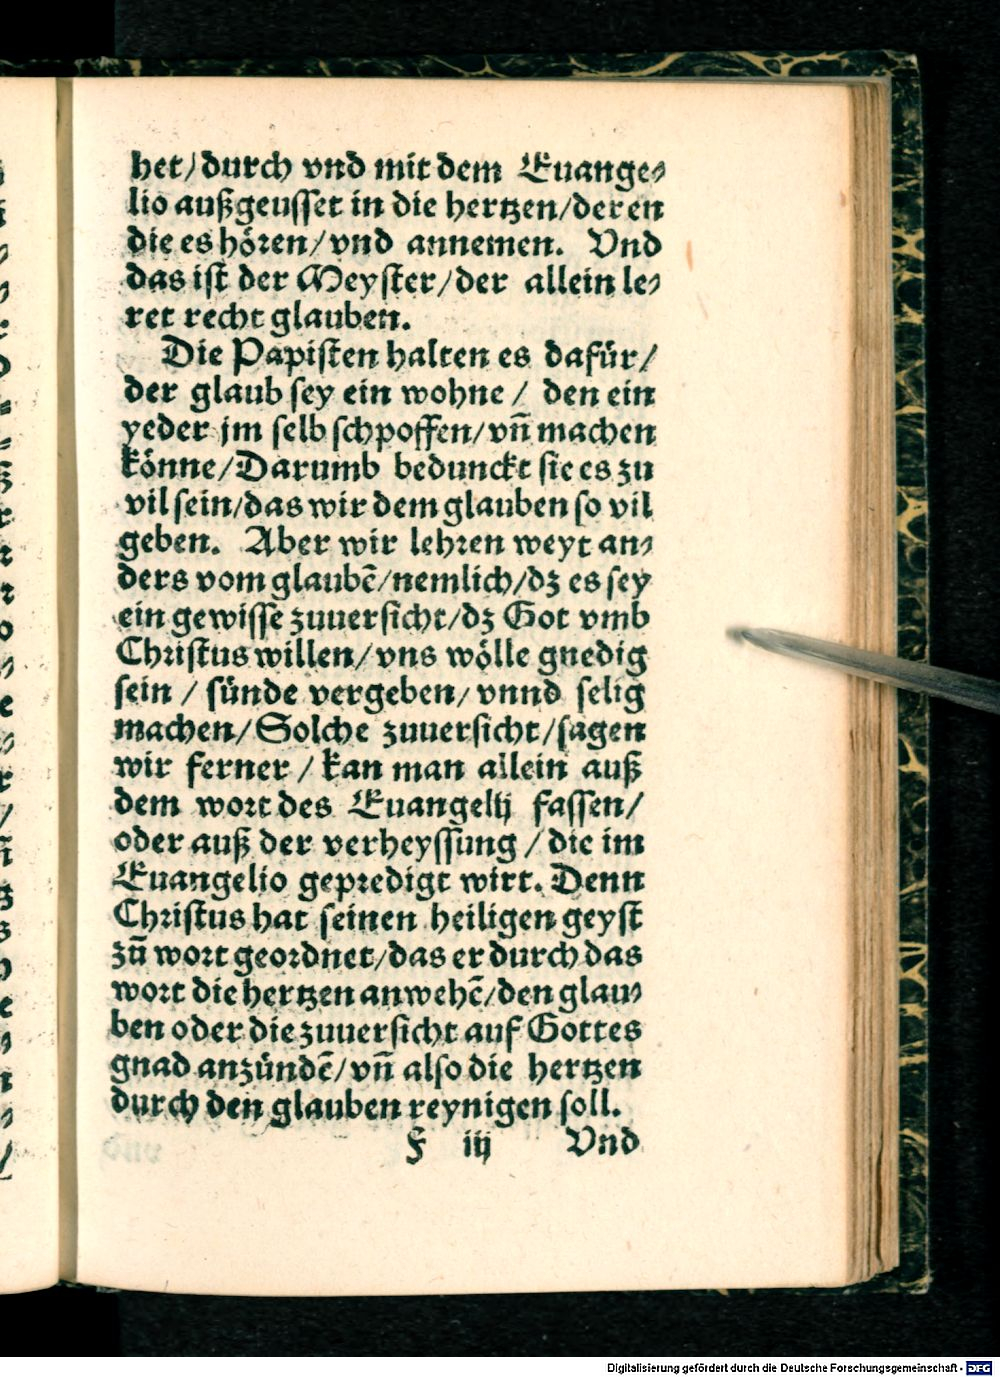 het/durch vnd mit dem Euange⸗
lio außgeusset in die hertzen/deren
die es hören/vnd annemen. Vnd
das ist der Meyster/der allein le⸗
ret recht glauben.
Die Papisten halten es dafür/
der glaub sey ein wohne / den ein
yeder jm selb schpoffen/vñ machen
könne/Darumb bedunckt sie es zu
vil sein/das wir dem glauben so vil
geben. Aber wir lehren weyt an⸗
ders vom glaubē/nemlich/dz es sey
ein gewisse zuuersicht/dz Got vmb
Christus willen/vns wölle gnedig
sein / sünde vergeben/vnnd selig
machen/Solche zuuersicht/sagen
wir ferner / kan man allein auß
dem wort des Euangelij fassen/
oder auß der verheyssung / die im
Euangelio gepredigt wirt. Denn
Christus hat seinen heiligen geyst
zū wort geordnet/das er durch das
wort die hertzen anwehē/den glau⸗
ben oder die zuuersicht auf Gottes
gnad anzündē/vñ also die hertzen
durch den glauben reynigen soll.
F iij Vnd
Digitalisierung gefördert durch die Deutsche Forschungsgemeinschaft - DFG